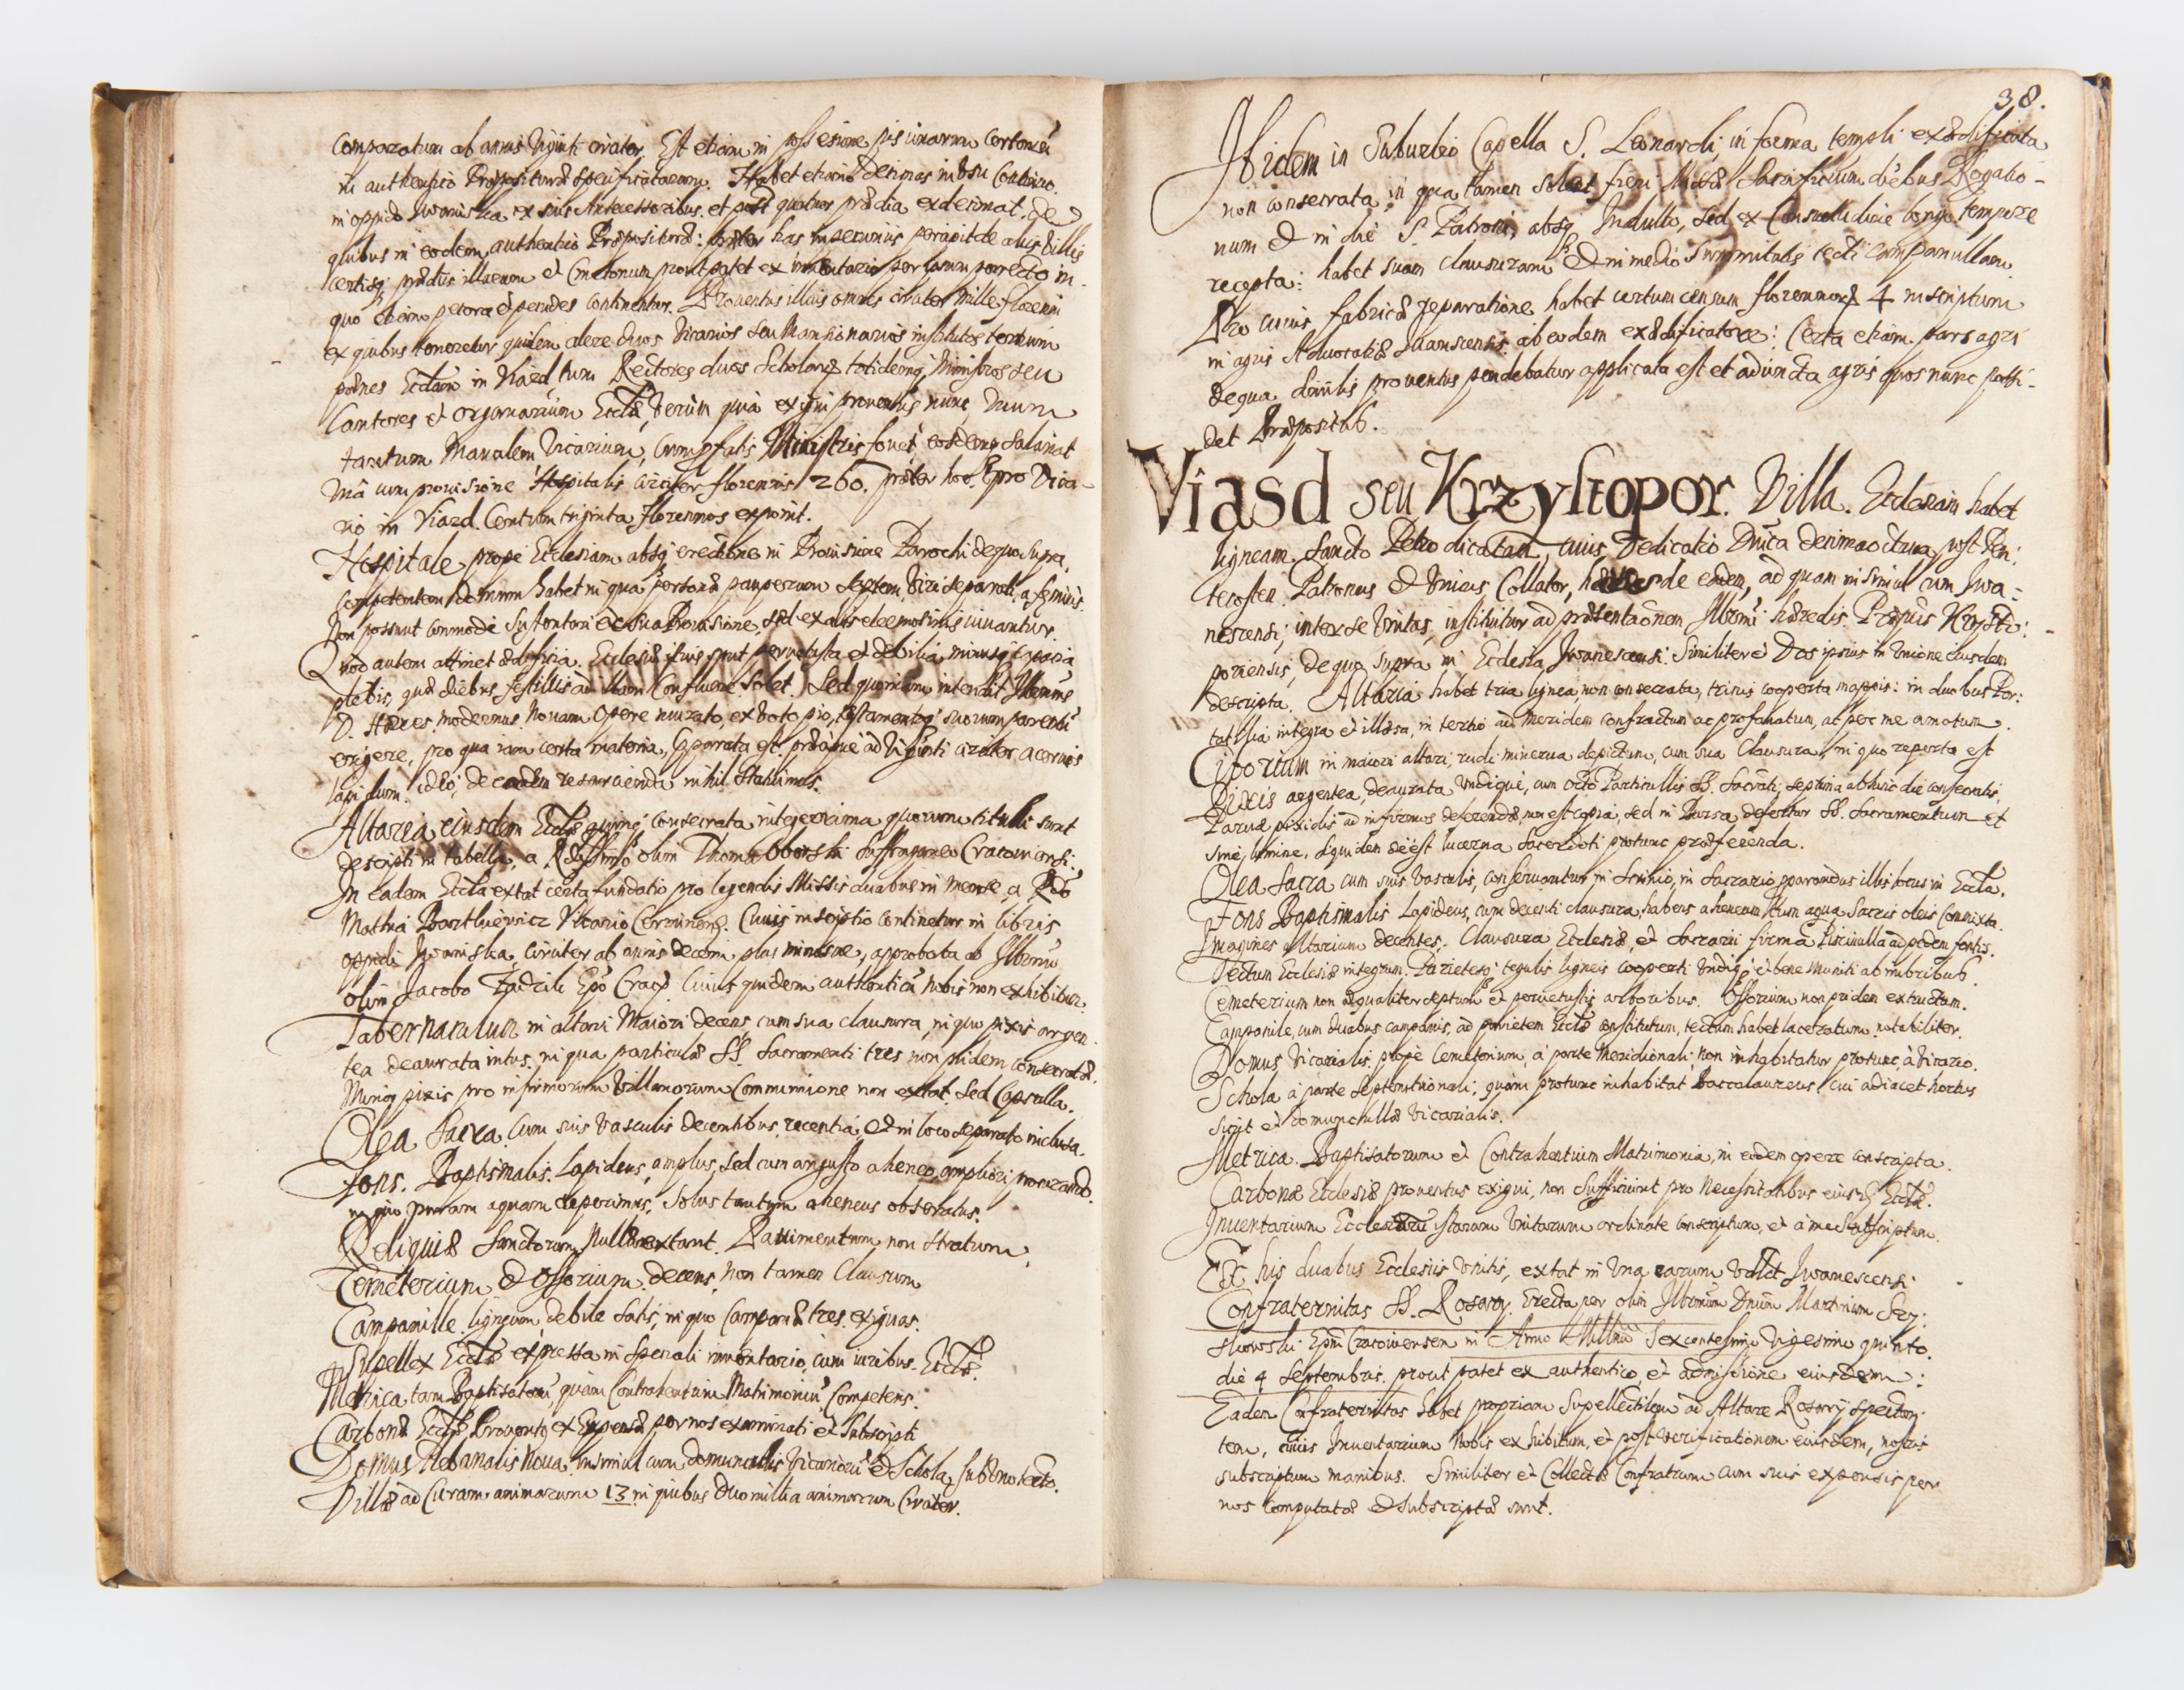 comparatum ab annis viginti circiter. Est etiam in possessione piscinarum certarum
in authentico Præposituræ specificatarum. Habet etiam decimas in usu continuo
in oppido Iwaniska ex suis Antecessoribus, et post quatuor prædia exdecimat, de
quibus in eodem authentico Præpositurae: præter has in pecuniis percipit de aliis villis
certisq prædiis illarum et Cmetonum prout patet ex inventario per porrecto in-
quo etiam pecora et pendes continentur. Proventus illius omnes circiter mille floreni
ex quibus teneretur quidem alere duos Vicarios seu Mansionarios institutos tertium
pænes Eccłam in Viazd tum Rectores duos Scholarꝝ totidemq Ministros seu
Cantores et organarium Eccłæ, Verum quia exigui proventus nunc Unum
tantum Manualem Vicarium, cum pfatis Ministris fovet, eosdemq salariat
Unà cum provisione Hospitalis circiter florenis 260. præter hoc pro Vica-
rio in Viazd. Centum triginta florenos exponit.
Hospitale propè Ecclesiam absq erectione in Provisione Parochi de quo supra,
competentem domum habet in qua personæ pauperum septem, viri separati, a fæminis.
Non possunt commodè sustentari ex sua Provisione, sed ex aliis eleemosinis iuvantur.
Quod autem attinet ædificia. Ecclesiæ istius sunt pervetusta et debilia, minusq capacia
plebis, quæ diebus festivis ad illam confluere solet. Sed quoniam intendit Illrmus
D. Hæres modernus Novam opere murato, ex voto pio, testamentoq suorum parentũ
erigere, pro qua iam certa materia, comparata est, præcipuè ad Viginti circiter acervos
lapidum. ideo, de eadem resarcienda nihil statuimus.
Altaria eiusdem Eccłæ quinq consecrata integerrima quorum tituli sunt
descripti in tabella, a Rdissimo olim Thoma Oborski Suffraganeo Cracoviensi,
In eadem Eccła extat certa fundatio pro legendis Missis duabus in mense, a Rdo
Mathia Bartkiewicz Vicario Cerninensi. Cuius inscriptio continetur in libris
oppidi Iwaniska, circiter ab annis decem plus minusve, approbata ab Illrmo
olim Jacobo Zadzik Epõ Cracꝫ. Cuius quidem authenticũ Nobis non exhibitur.
Tabernaculum in altari Maiori decens, cum sua clausura, in quo pixis argen-
tea deaurata intus, in qua particulæ SS. Sacramenti tres non pridem consecratæ.
Minoꝝ pixis pro infirmorum Villanorum Communione non extat, sed Capsulla.
Olea Sacra cum suis Vasculis decentibus, recentia, et in loco separato inclusa.
Fons. Baptismalis. Lapideus, amplus, sed cum angusto aheneo, ampliori procurando,
in quo puram aquam reperimus, Solus tantum aheneus obseratus.
Reliquiæ Sanctorum Nullæ extant. Pavimentum non stratum,
Cemeterium et Ossorium decens, Non tamen Clausum
Campanille ligneum debile satis, in quo Campanæ tres exiguæ.
Supellex Eccłæ expressa in speciali inventario, cum iuribus Eccłæ.
Metrica tam Baptisatorũ, quàm Contrahentium Matrimoniũ Competens.
Carbonæ Eccłæ, Proventꝰ et Expensæ per nos examinati et subscripti
Domus Plebanalis Nova insimul cum domunculis Vicariorũ et Schola, sub uno tecto.
Villæ ad Curam animarum 13 in quibus duo millia animarum Circiter.
38.
Ibidem in Suburbio Capella S. Leonardi, in forma templi exædificata
non consecrata, in qua tamen solet fieri Missæ Sacrificium diebus Rogatio-
num et in die S. Patroni, absq Indulto, sed ex Consuetudine longo tempore
recepta: habet suam clausuram et in medio summitatis tecti campanullam.
Pro cuius fabricæ reparatione habet certum censum florenorꝝ 4 inscriptum
in agris Advocatiæ Iwaniscensis, ab eodem exædificatore: Certa etiam pars agri
de qua similis proventus pendebatur applicata est et adiuncta agris quos nunc possi-
det Præpositus.
Viasd seu Krzysztopor. Villa. Ecclesiam habet
ligneam, Sancto Petro dicatam, cuius Dedicatio Dnica decimaoctava post Pen:
tecosten. Patronus et Unicus Collator, hæres de eadem, ad quam insimul cum Iwa-
nescensi, inter se Unitas, instituitur ad præsentaõnem Illrmi hæredis. Præpũs Krzysto:
poriensis, de quo supra in Ecclesia Iwanescensi. Similiter et Dos ipsius in Unione eiusdem
descripta. Altaria habet tria lignea, non consecrata, trinis cooperta mappis: in duobus Por:
tatilia integra et illæsa, in tertio ad meridem confractum ac profanatum, ac per me amotum.
Ciborium in maiori altari, rudi minerva depictum, cum sua Clausura, in quo reperta est
Pixis argentea, deaurata undiqué, cum octo Particullis SS. Sacrãti, septima abhinc die consecratis.
Parvæ pixidis ad infirmos deferendæ, non est copia, sed in Bursa defertur SS. Sacramentum et
sine lumine, siquidem deest lucerna Sacerdoti protunc præferenda.
Olea Sacra cum suis Vasculis, conservantur in Scrinio, in Sacrario, parandus illis locus in Eccła.
Fons Baptismalis Lapideus, cum decenti clausura, habens aheneum cum aqua Sacris oleis Commixta.
Imagines altarium decentes. Clausura Ecclesiæ, et Sacrarii firma Piscinulla ad pedem fontis.
Tectum Ecclesiæ integrum. Parietesq tegulis ligneis cooperti undiq et bene muniti ab imbribus.
Cemeterium non æqualiter septum et pervetustis arboribus. Ossorium non pridem extructum.
Campanile, cum duabus campanis, ad parietem Eccłæ constitutum, tectum habet laceratum notabiliter.
Domus Vicarialis propè Cemeterium, à parte Meridionali, non inhabitatur protunc, à Vicario.
Schola à parte Septentrionali, quàm protunc inhabitat Baccalaureus, cui adiacet hortus
sicut et domunculæ Vicarialis.
Metrica. Baptisatorum et Contrahentium Matrimonia, in eodem opere conscripta.
Carbonæ Ecclesiæ proventus exigui, non sufficiunt pro necessitatibus eiusd Eccłæ.
Inventarium Ecclesiarũ istarum Unitarum ordinate conscriptum, et à me Subscriptum.
Ex his duabus Ecclesiis Unitis, extat in Una earum videlicet Iwanescensi
Confraternitas SS. Rosarij. Erecta per olim Illrmum Dnum Martinum Szy:
szkowski Epm Cracoviensem in Anno Millmo Sexcentesimo Vigesimo quinto.
die 4 Septembris, prout patet ex authentico, et admissione eiusdem:
Eadem Confraternitas habet propriam Supellectilem ad Altare Rosarij spectan:
tem, cuius Inventarium Nobis exhibitum, et post verificationem eiusdem, nostris
subscriptum manibus. Similiter et Collectæ Confratrum cum suis expensis per
nos computatæ et subscriptæ sunt.